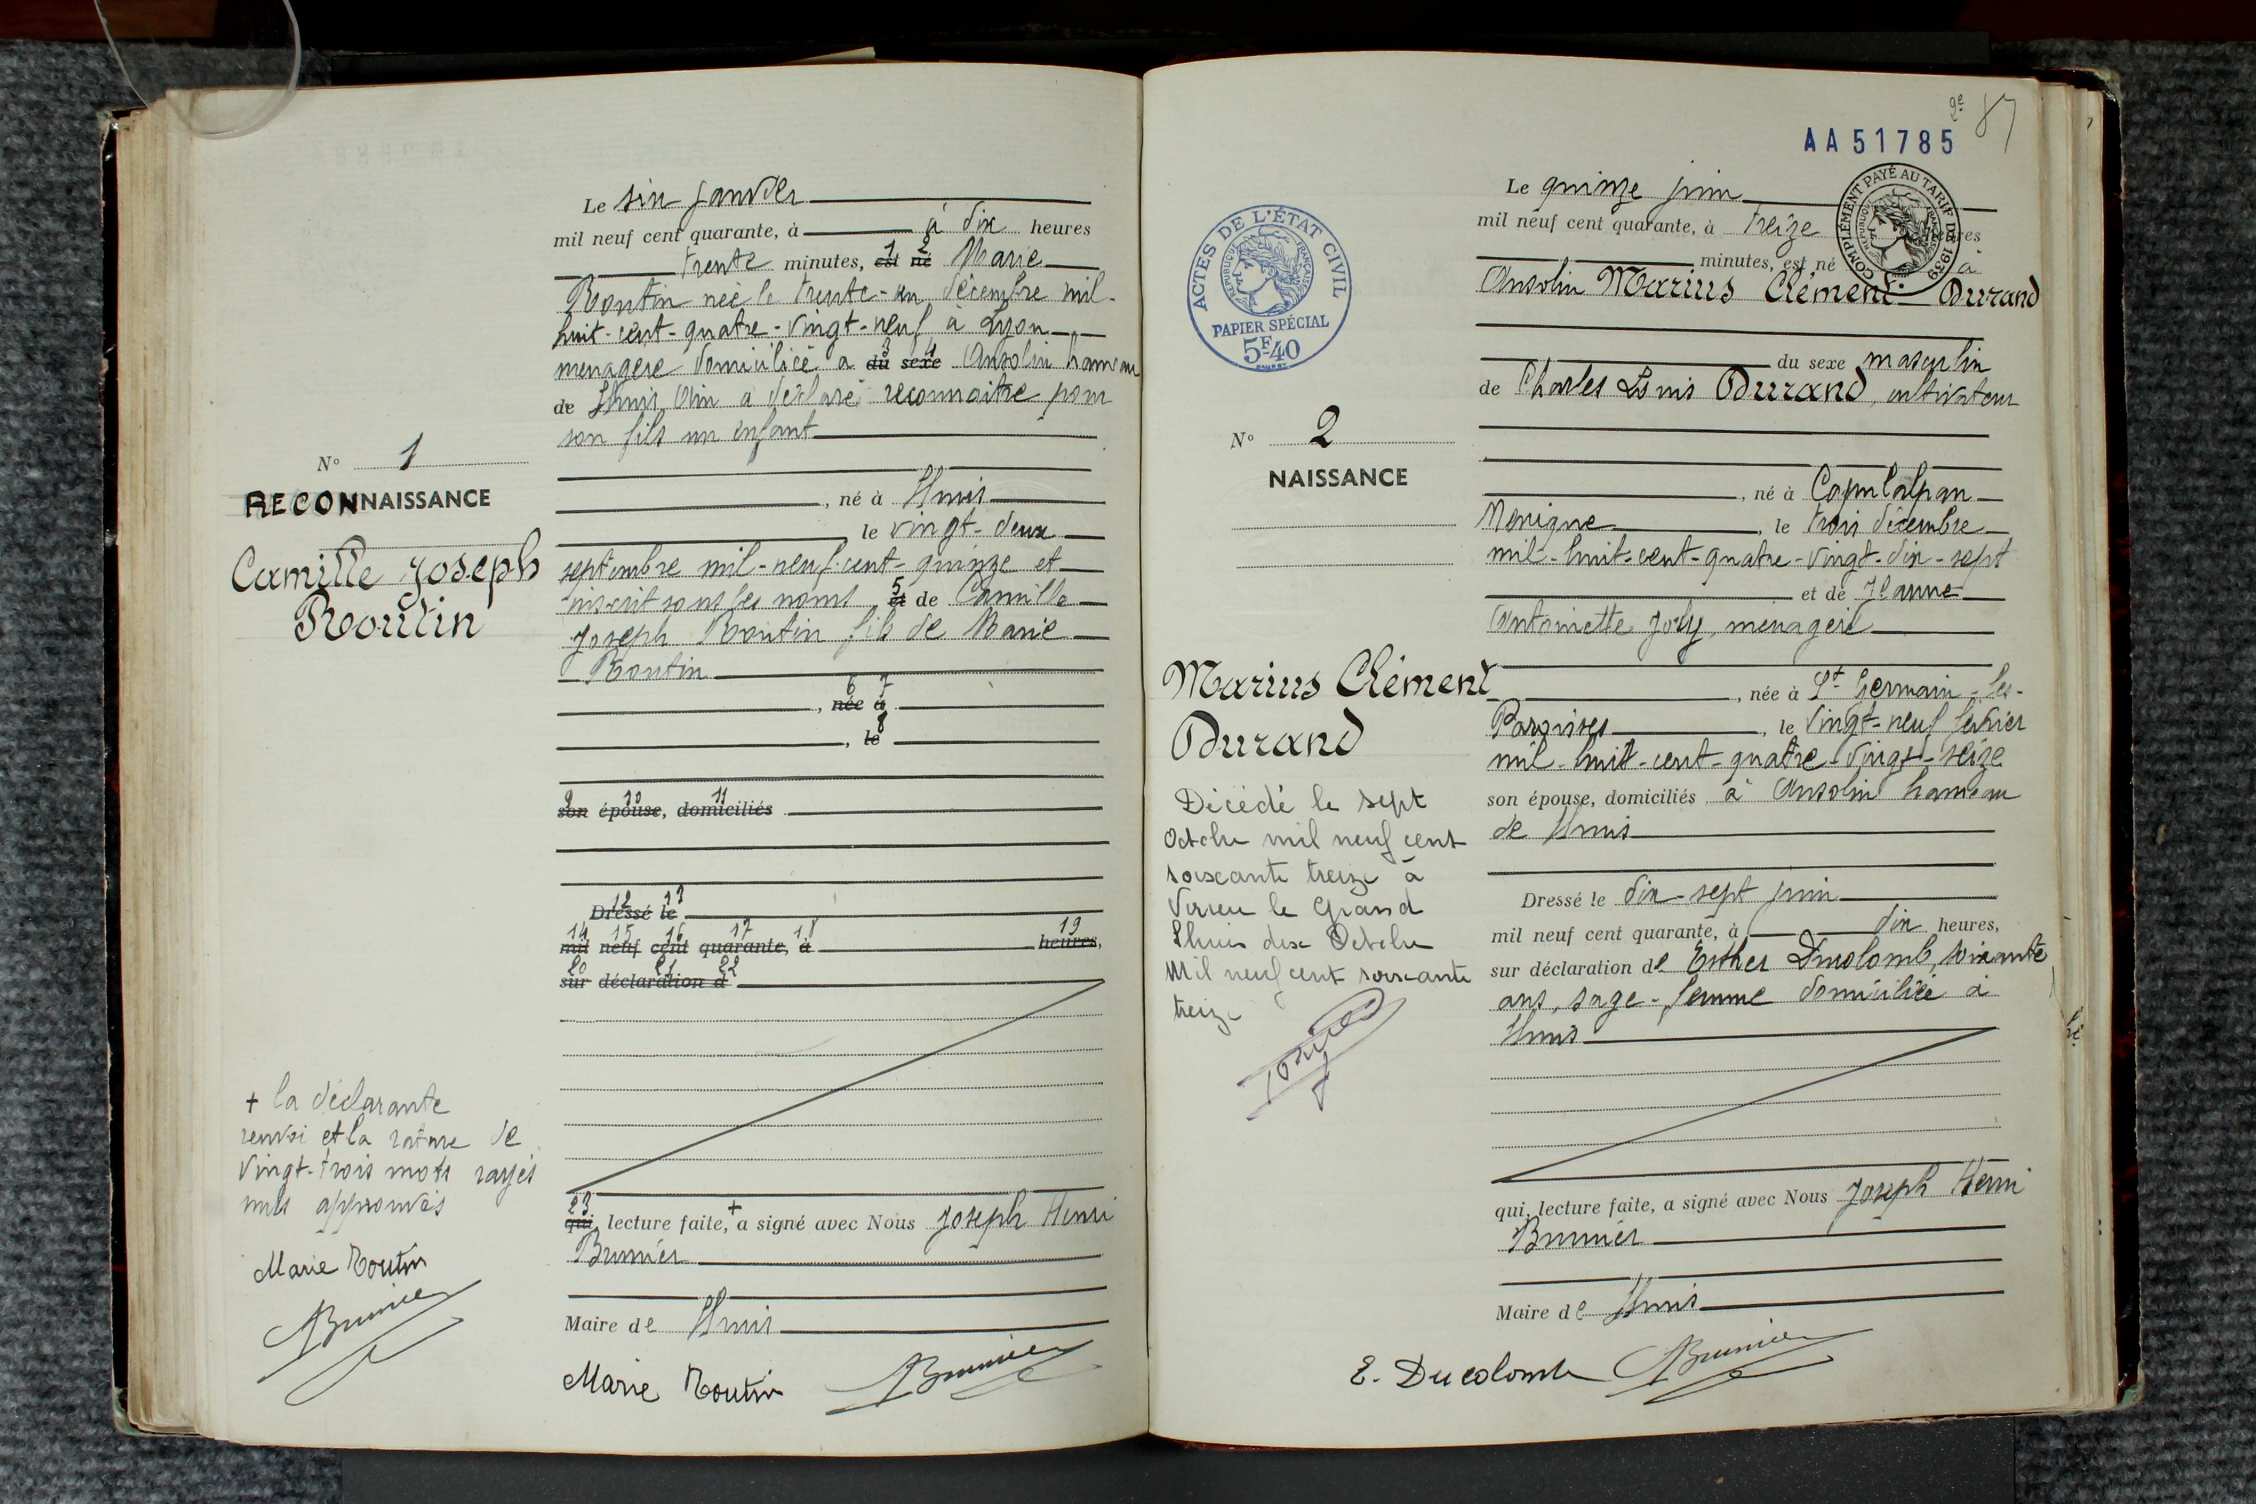 Le six Janvier
mil neuf cent quarante, à à dix heures
trente minutes, 1 est 2 né Marie
Routin née le trente-un décembre mil-
huit-cent-quatre-vingt-neuf à Lyon
ménagère domiciliée a 3 du 4 sexe Ansolin hameau
de Lhuis Ain a déclaré reconnaitre pour
son fils un enfant
, né à Lhuis
le vingt-deux
septembre mil-neuf-cent-quinze et
inscrit sous les noms 5 et de Camille
Joseph Routin fils de Marie
Routin
, 6 née 7 à
, 8 le
9 son 10 épouse, 11 domiciliés
12 Dressé 13 le
14 mil 15 neuf 16 cent 17 quarante, 18 à 19 heures,
20 sur 21 déclaration 22 d
23 qui, lecture faite, + a signé avec Nous Joseph Henri
Brunier
Maire de Lhuis
Marie Routin Brunier
N° 1
RECONNAISSANCE
Camille Joseph
Routin
+ la déclarante
renvoi et la rature de
vingt-trois mots rayés
nuls approuvés
Marie Routin
Brunier
2e 87
AA51785
Le quinze juin
mil neuf cent quarante, à treize heures
minutes, est né à
Ansolin Marius Clément Durand
du sexe masculin
de Charles Louis Durand, cultivateur
, né à
, le trois décembre
mil-huit-cent-quatre-vingt-dix-sept
et de Jeanne
Antoinette Joly, ménagère
, née à St Germain-les-
Paroisses, le vingt-neuf février
mil-huit-cent-quatre-vingt-seize
son épouse, domiciliés à Ansolin hameau
de Lhuis
Dressé le dix-sept juin
mil neuf cent quarante, à dix heures,
sur déclaration de Esther Ducolomb, soixante
ans, sage-femme domiciliée à
Lhuis
qui, lecture faite, a signé avec Nous Joseph Henri
Brunier
Maire de Lhuis
E. Ducolomb Brunier
ACTES DE L'ÉTAT CIVIL
RÉPUBLIQUE FRANÇAISE
PAPIER SPÉCIAL
5F40
COMPLÉMENT PAYÉ AU TARIF DE 1939
RÉPUBLIQUE FRANÇAISE
N° 2
NAISSANCE
Marius Clément
Durand
Décédé le sept
Octobre mil neuf cent
soixante treize à
Virieu le Grand
Lhuis dix Octobre
Mil neuf cent soixante
treize